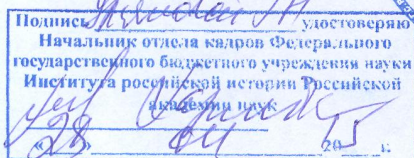 Подпись удостоверяю
Начальник отдела кадров Федерального
государственного бюджетного учреждения науки
Института российской истории Российской
академии наук
«28» 04 2015 г.